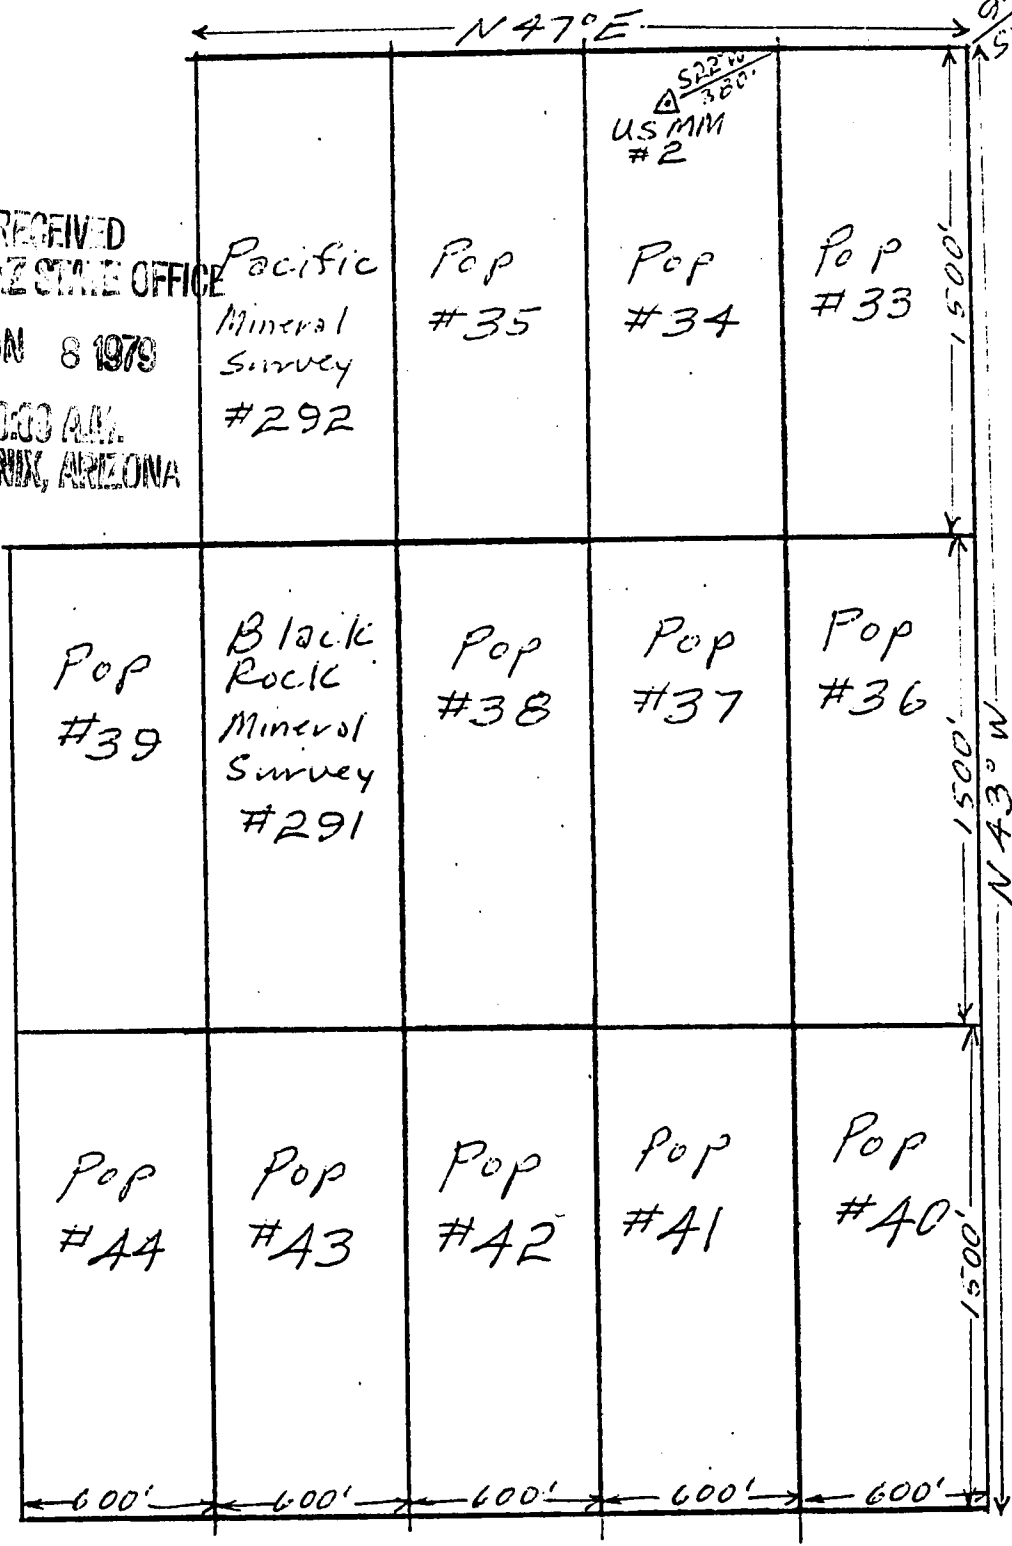 N 47° E
S22W
380'
US MM
#2
RECEIVED
AZ STATE OFFICE
8 1979
A.M.
ARIZONA
Pacific
Mineral
Survey
#292
Pop
#35
Pop
#34
Pop
#33
1500'
Pop
#39
Black
Rock
Mineral
Survey
#291
Pop
#38
Pop
#37
Pop
#36
1500'
N 43° W
Pop
#44
Pop
#43
Pop
#42
Pop
#41
Pop
#40
1500'
600'
600'
600'
600'
600'